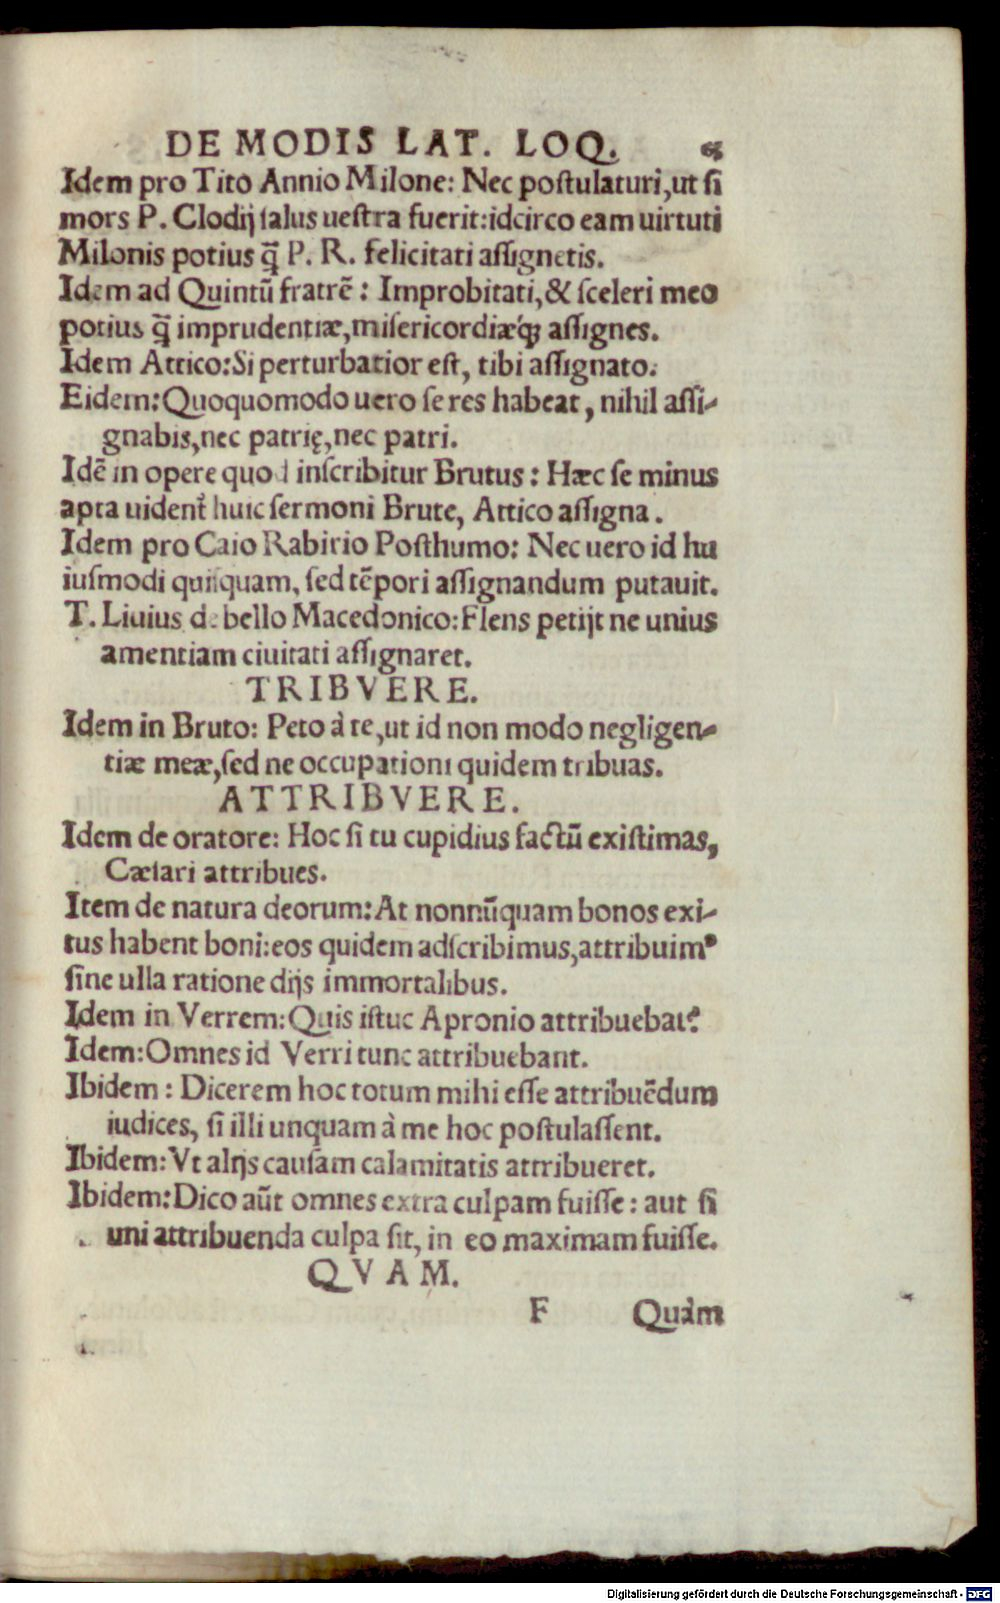 DE MODIS LAT. LOQ.
Idem pro Tito Annio Milone: Nec postulaturi, ut si
mors P. Clodij salus uestra fuerit: idcirco eam uirtuti
Milonis potius q̃ P. R. felicitati assignetis.
Idem ad Quintũ fratrẽ: Improbitati, & sceleri meo
potius q̃ imprudentiæ, misericordiæq́ꝫ assignes.
Idem Attico: Si perturbatior est, tibi assignato.
Eidem: Quoquomodo uero se res habeat, nihil assi-
gnabis, nec patrię, nec patri.
Idẽ in opere quod inscribitur Brutus: Hæc se minus
apta uident᷑ huic sermoni Brute, Attico assigna.
Idem pro Caio Rabirio Posthumo: Nec uero id hu
iusmodi quisquam, sed tẽpori assignandum putauit.
T. Liuius de bello Macedonico: Flens petijt ne unius
amentiam ciuitati assignaret.
TRIBVERE.
Idem in Bruto: Peto à te, ut id non modo negligen-
tiæ meæ, sed ne occupationi quidem tribuas.
ATTRIBVERE.
Idem de oratore: Hoc si tu cupidius factũ existimas,
Cæsari attribues.
Item de natura deorum: At nonnũquam bonos exi-
tus habent boni: eos quidem adscribimus, attribuimꝰ
sine ulla ratione dijs immortalibus.
Idem in Verrem: Quis istuc Apronio attribuebat?
Idem: Omnes id Verri tunc attribuebant.
Ibidem: Dicerem hoc totum mihi esse attribuẽdum
iudices, si illi unquam à me hoc postulassent.
Ibidem: Vt alijs causam calamitatis attribueret.
Ibidem: Dico aũt omnes extra culpam fuisse: aut si
uni attribuenda culpa sit, in eo maximam fuisse.
QVAM.
F Quàm
Digitalisierung gefördert durch die Deutsche Forschungsgemeinschaft - DFG